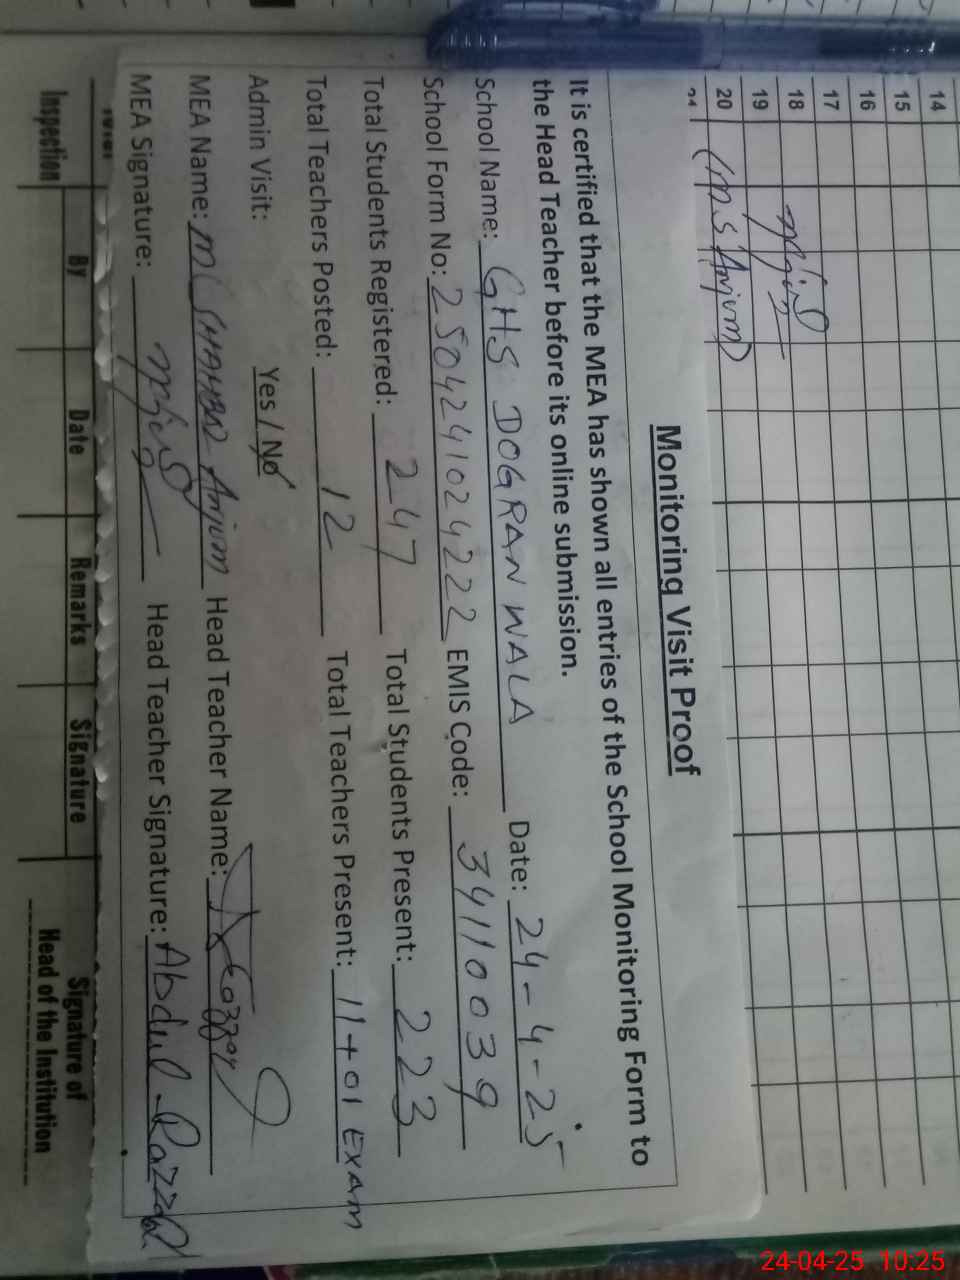 14
15
16
17
18
19
20
(M S Anjum)
Monitoring Visit Proof
It is certified that the MEA has shown all entries of the School Monitoring Form to
the Head Teacher before its online submission.
School Name: GHS DOGRANWALA Date: 24-4-25
School Form No: 2504241024222 EMIS Code: 34110039
Total Students Registered: 247 Total Students Present: 223
Total Teachers Posted: 12 Total Teachers Present: 11+01 EXAM
Admin Visit: Yes / No
MEA Name: Anjum Head Teacher Name:
MEA Signature: Head Teacher Signature: Abdul Razzaq
Inspection By Date Remarks Signature Signature of
Head of the Institution
24-04-25 10:25